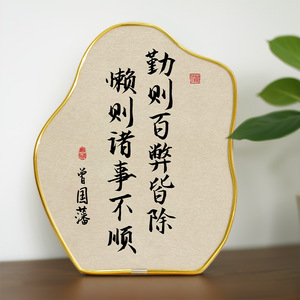 勤则百弊皆除
懒则诸事不顺
曾国藩